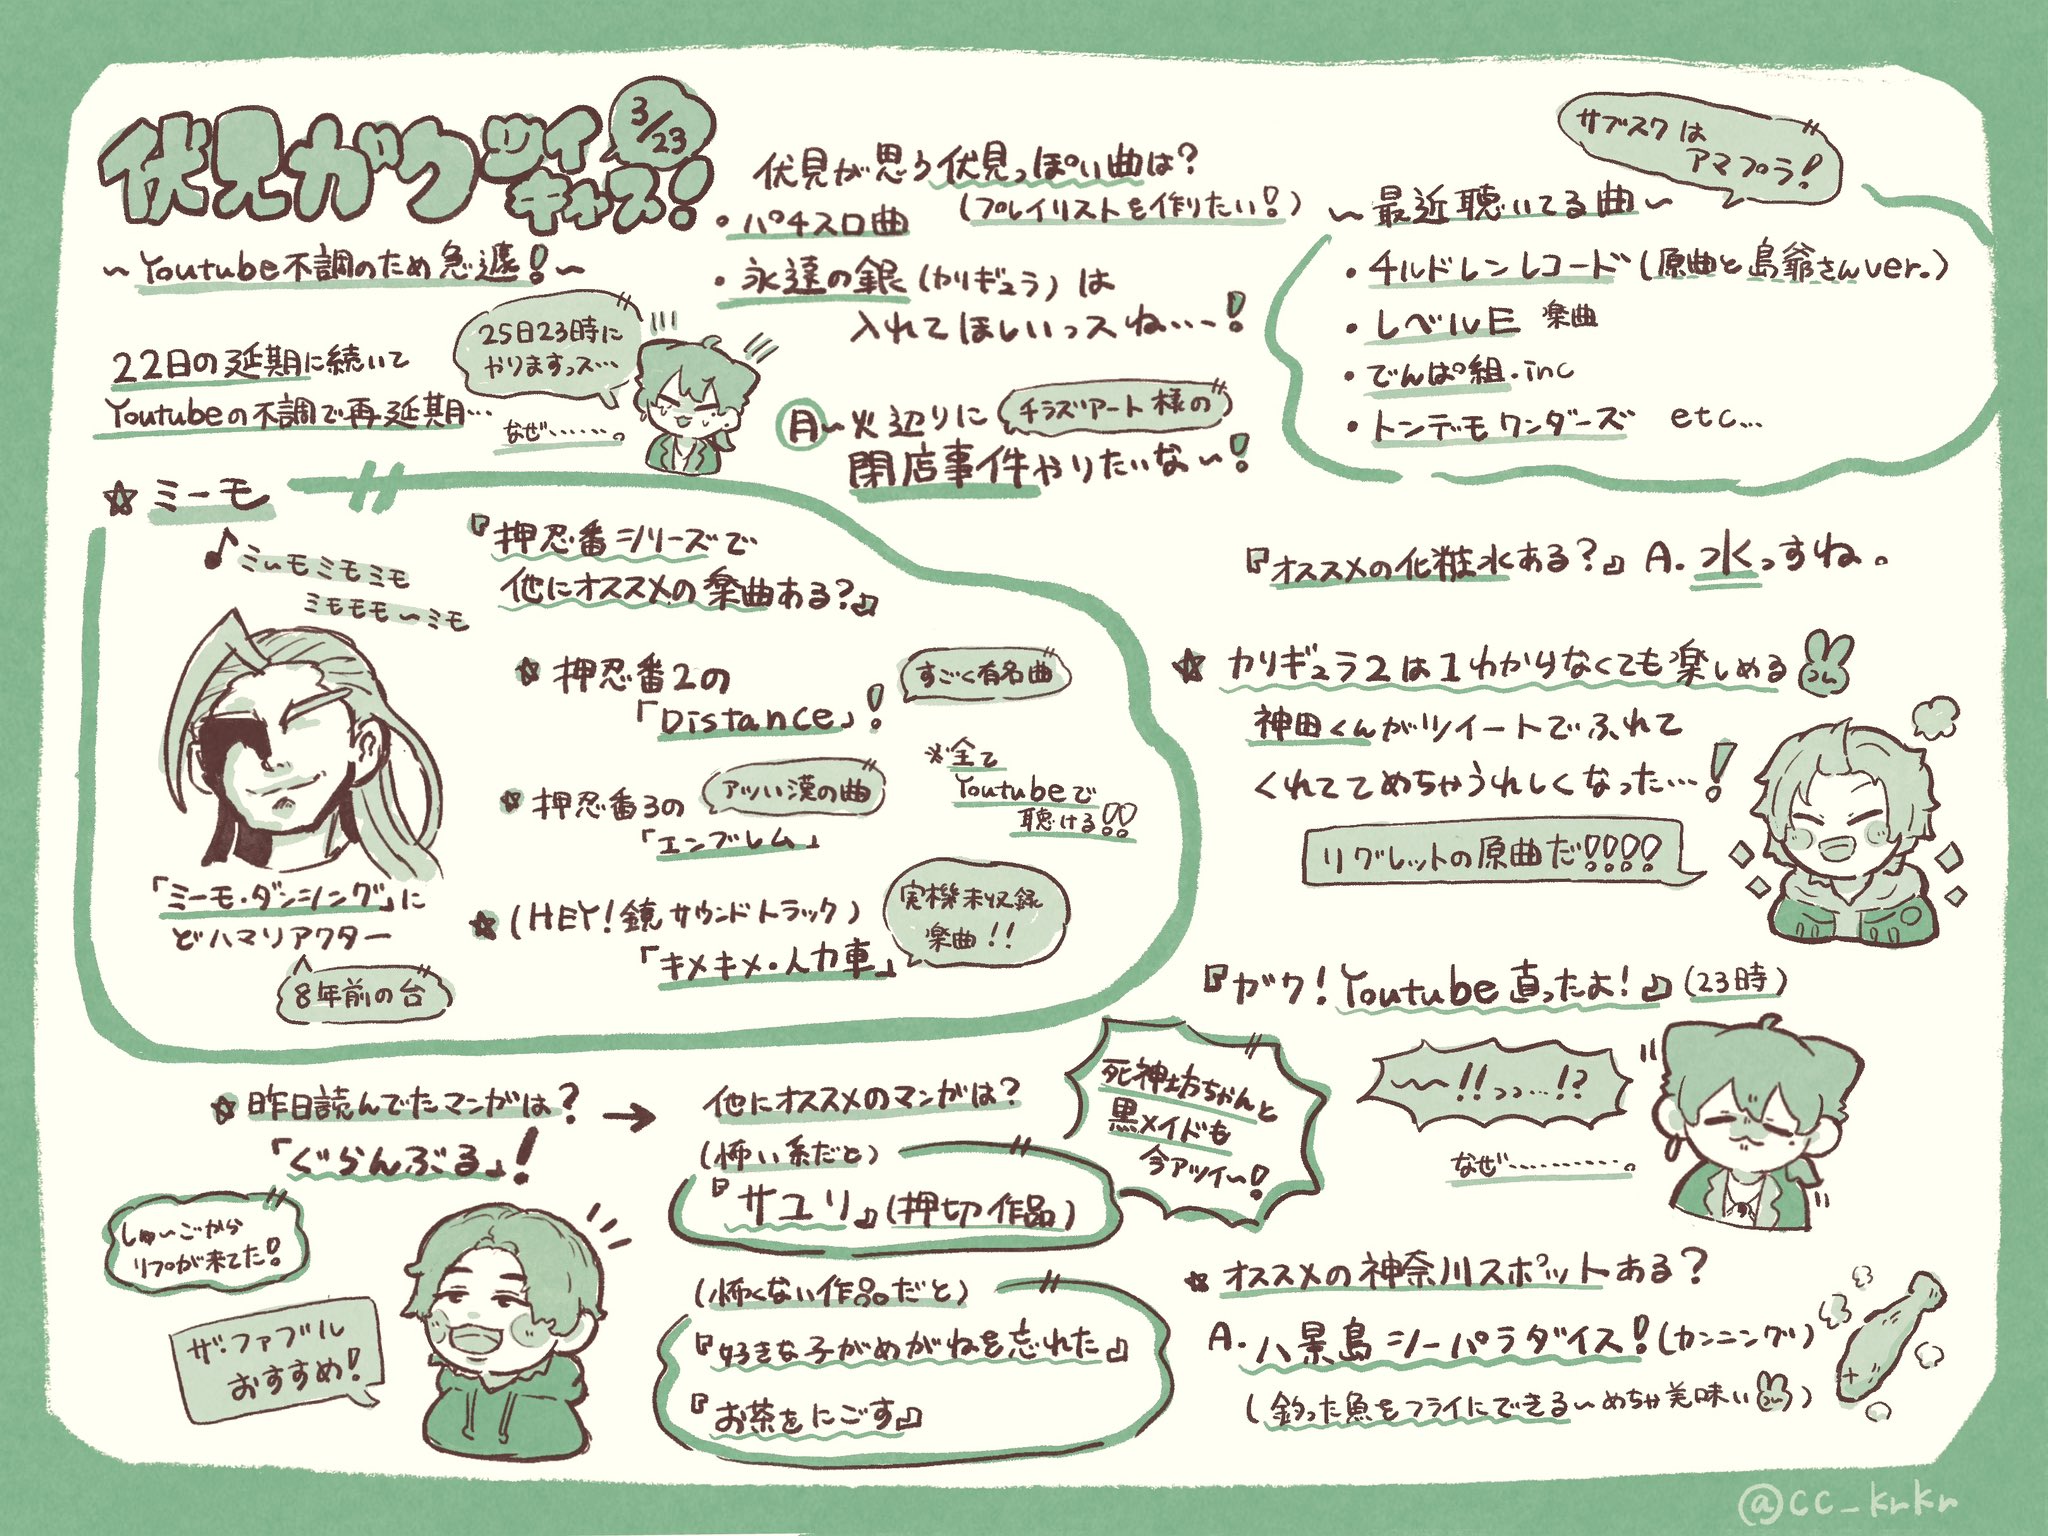 伏見ガクツイキャス!
3/23
~Youtube不調のため急遽!~
22日の延期に続いて
Youtubeの不調で再延期…
25日23時に
やりますっス…
なぜ……。
伏見が思う伏見っぽい曲は?
(プレイリストを作りたい!)
・パチスロ曲
・永遠の銀(カリギュラ)は
入れてほしいっスね…!
月~火辺りに
チラズアート様の
閉店事件やりたいな~!
サブスクは
アマプラ!
~最近聴いてる曲~
・チルドレンレコード(原曲と島爺さんver.)
・レベルE 楽曲
・でんぱ組.inc
・トンデモワンダーズ etc…
☆ミーモ
♪ミーモミモミモ
ミモモモ~ミモ
「ミーモ・ダンシング」に
どハマリアクター
8年前の台
『押忍番シリーズで
他にオススメの楽曲ある?』
★押忍番2の
「Distance」!
すごく有名曲
★押忍番3の
「エンブレム」
アツい漢の曲
※全て
Youtubeで
聴ける!!
★(HEY!鏡サウンドトラック)
「キメキメ・人力車」
実機未収録
楽曲!!
『オススメの化粧水ある?』A.水っすね。
☆カリギュラ2は1わからなくても楽しめる
神田くんがツイートでふれて
くれててめちゃうれしくなった…!
リグレットの原曲だ!!!!
『ガク!Youtube直ったよ!』(23時)
~~!!っっ…!?
なぜ…………。
☆昨日読んでたマンガは?→
「ぐらんぶる」!
しゅーごから
リプが来てた!
ザ・ファブル
おすすめ!
他にオススメのマンガは?
(怖い系だと)
『サユリ』(押切作品)
(怖くない作品だと)
『好きな子がめがねを忘れた』
『お茶をにごす』
死神坊ちゃんと
黒メイドも
今アツイ~!
★オススメの神奈川スポットある?
A.八景島シーパラダイス!(カンニング)
(釣った魚をフライにできる~めちゃ美味い)
@cc_krkr